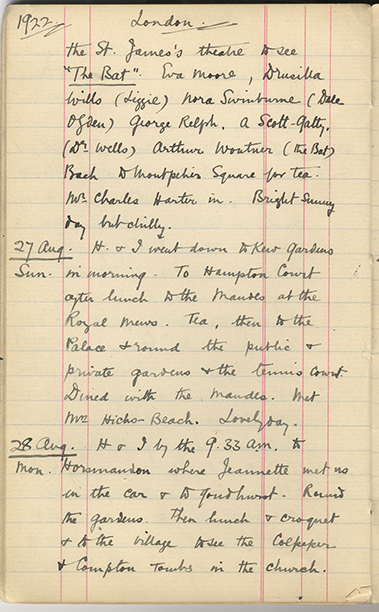 1922. London.
the St. James's theatre to see
"The Bat". Eva Moore, Drusilla
Wills (Lizzie) Nora Swinburne (Dale
Ogden) George Relph. A Scott-Gatty.
(Dr. Wells) Arthur Wontner (the Bat)
Back to Montpelier Square for tea.
Mr. Charles Harter in. Bright Sunny
day but chilly.
27 Aug. H. & I went down to Kew Gardens
Sun. in morning. To Hampton Court
after lunch to the Maudes at the
Royal Mews. Tea, then to the
Palace & round the public &
private gardens & the tennis court.
Dined with the Maudes. Met
Hicks-Beach. Lovely day.
28 Aug. H & I by the 9.33 am. to
Mon. Horsmonden where Jeannette met us
in the car & to Goudhurst. Round
the gardens. Then lunch & croquet
& to the village to see the Colpeper
& Compton tombs in the church.